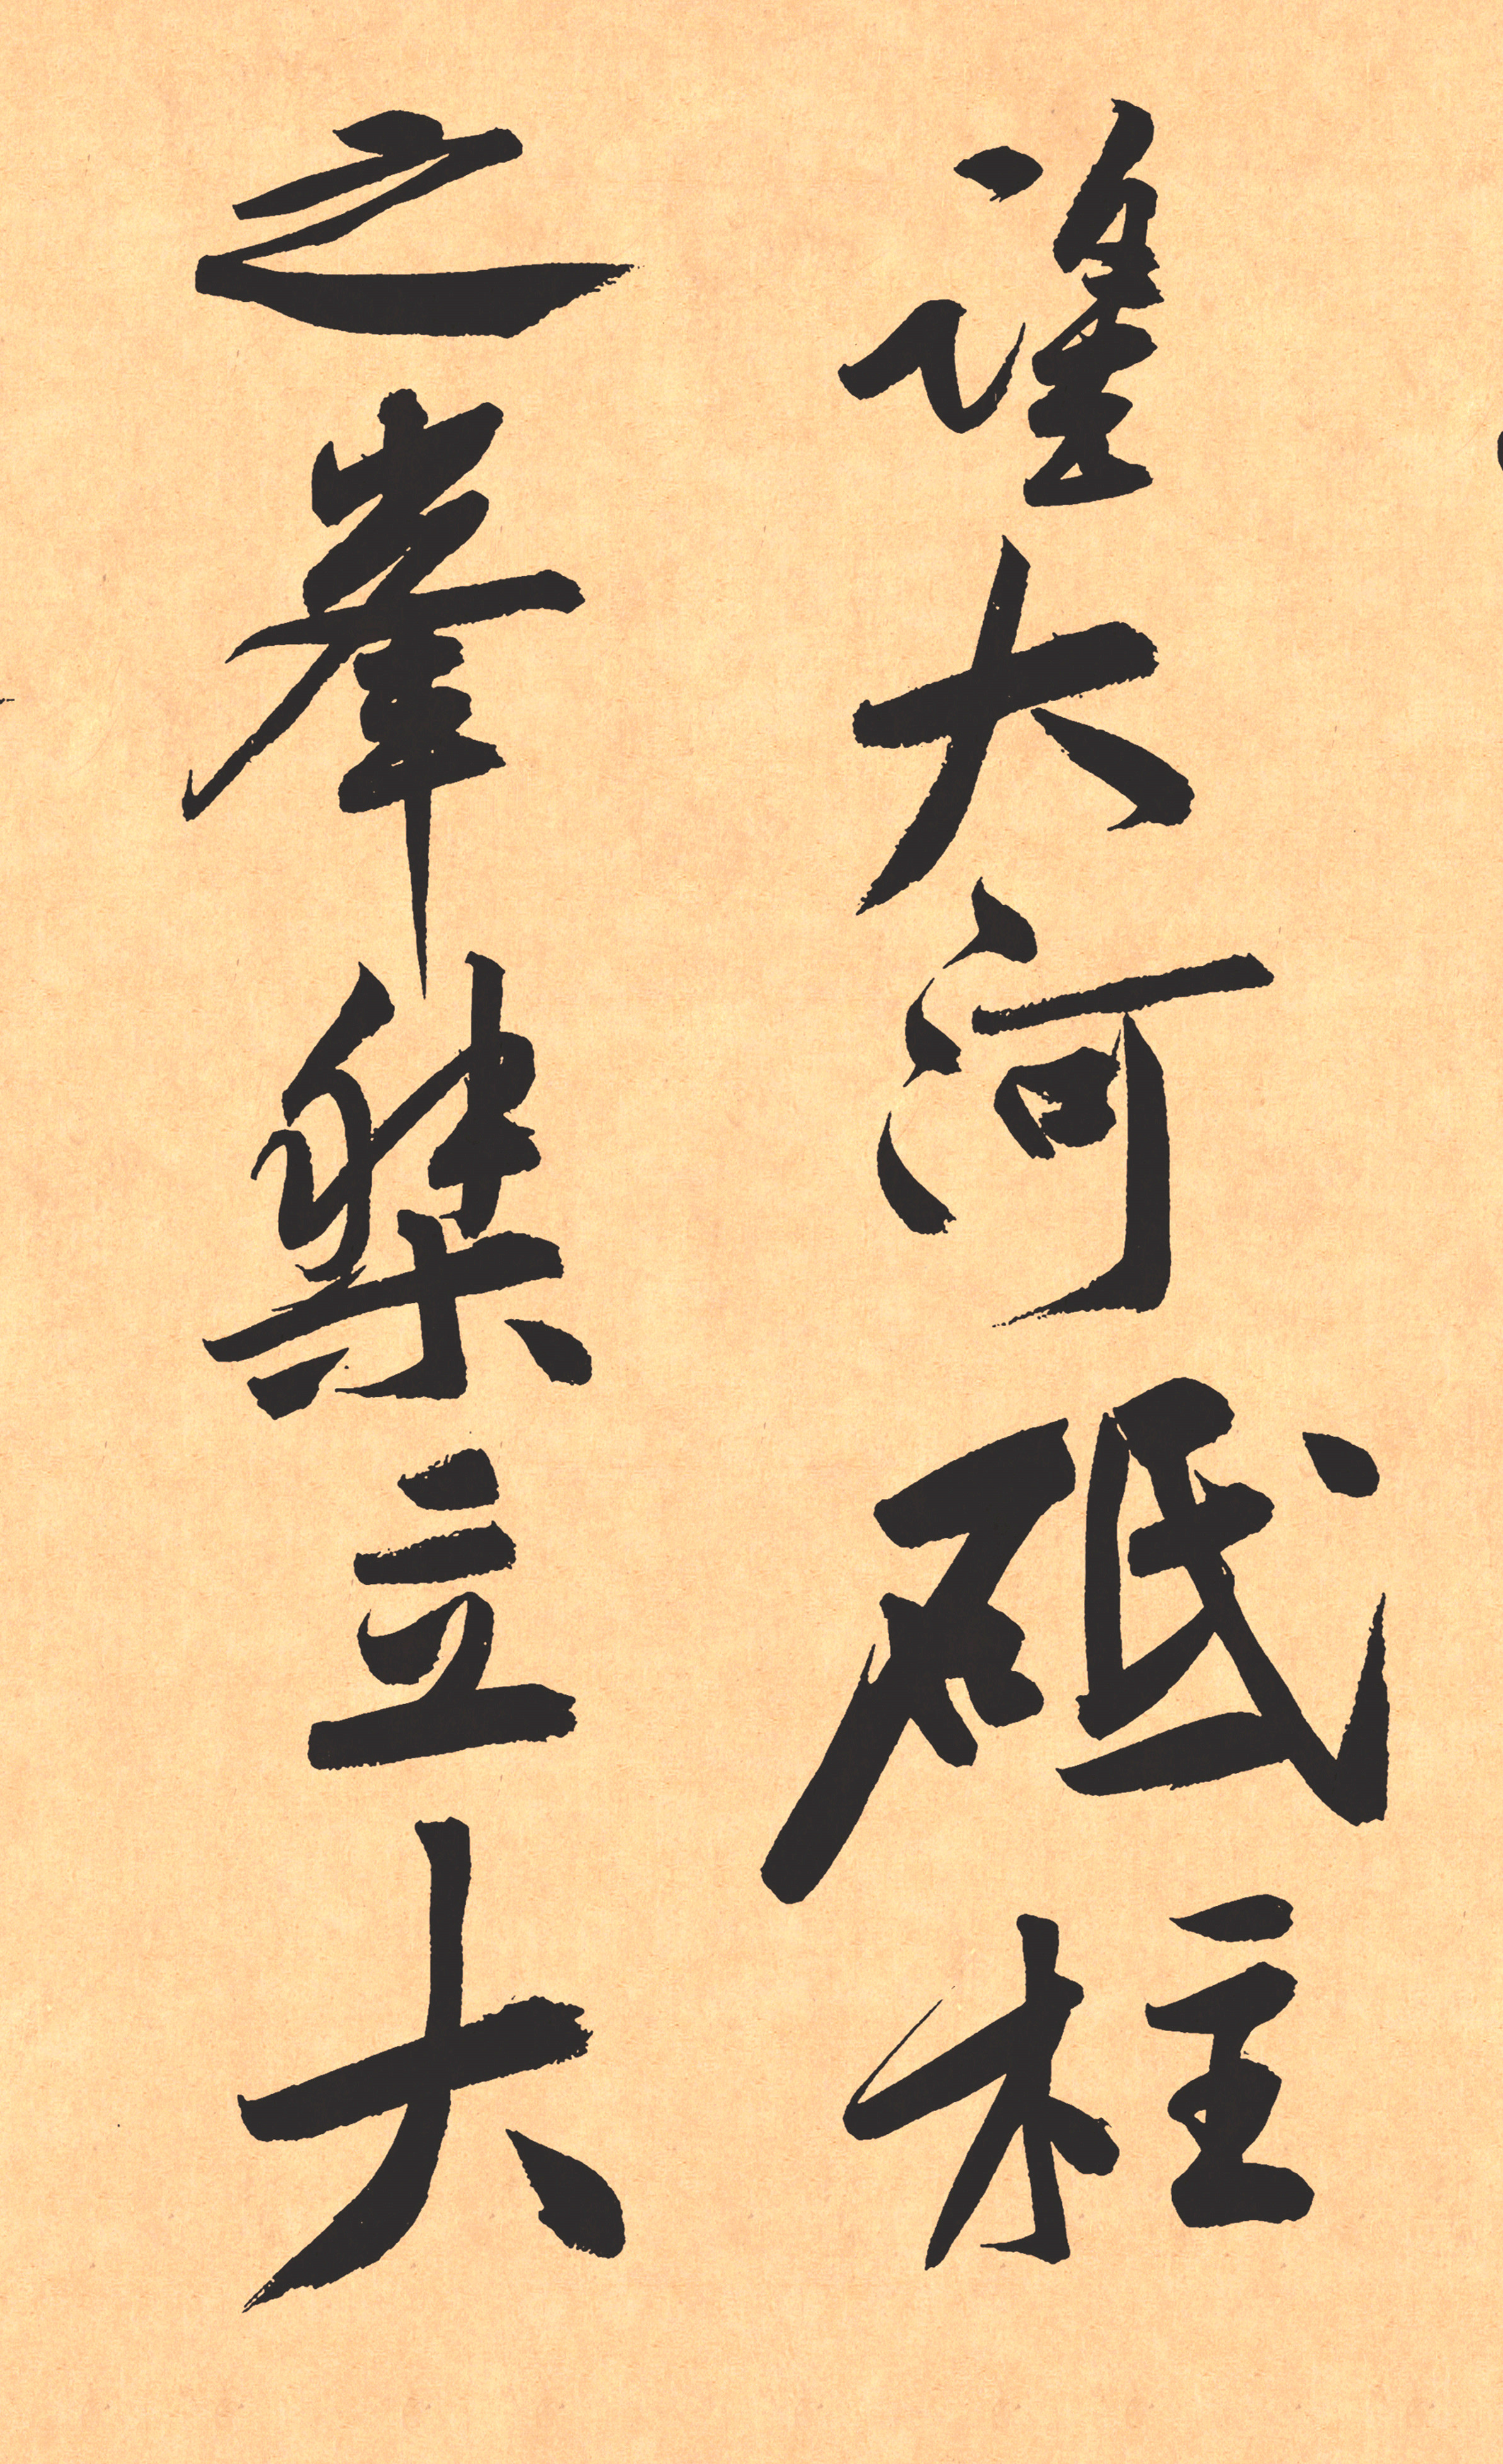 謹大河砥柱
之峯桀立大